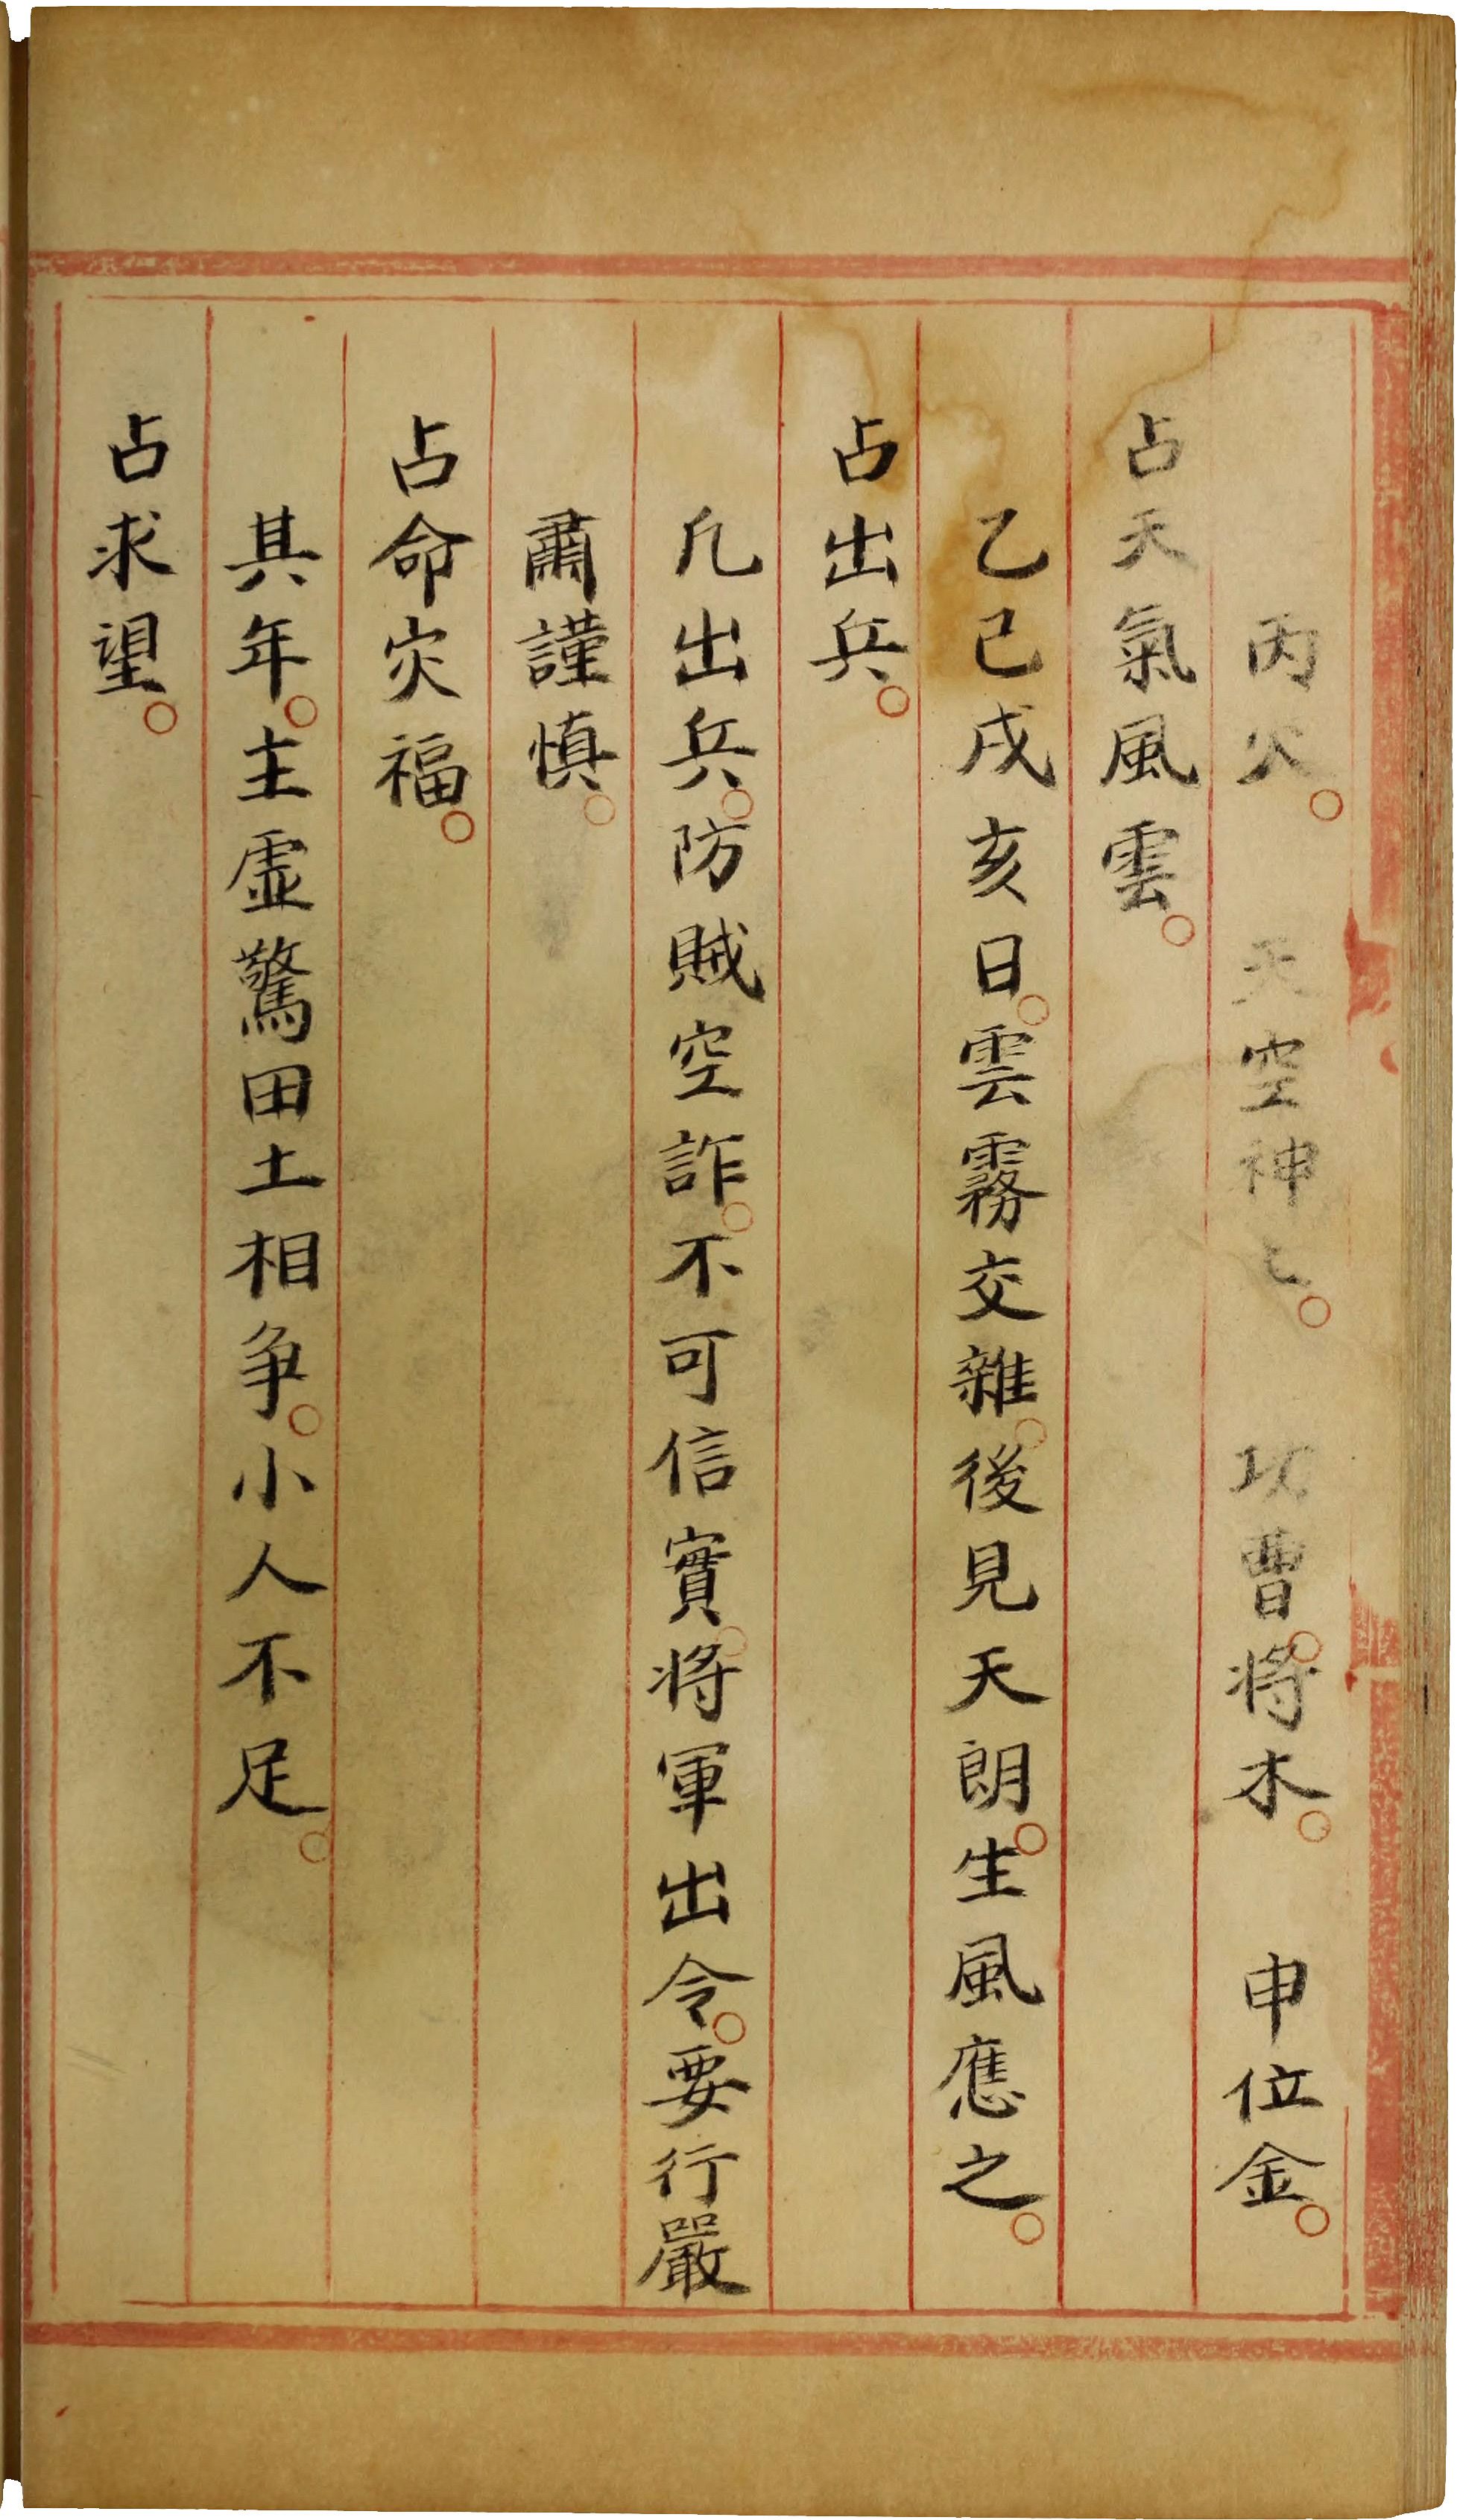 丙火。天空神土。功曹。將木。申位金。
占天氣風雲。
乙己戌亥日。雲霧交雜。後見天朗。生風應之。
占出兵。
凡出兵。防賊空詐。不可信實。將軍出令。要行嚴
肅謹慎。
占命灾福。
其年。主虛驚田土相争。小人不足。
占求望。